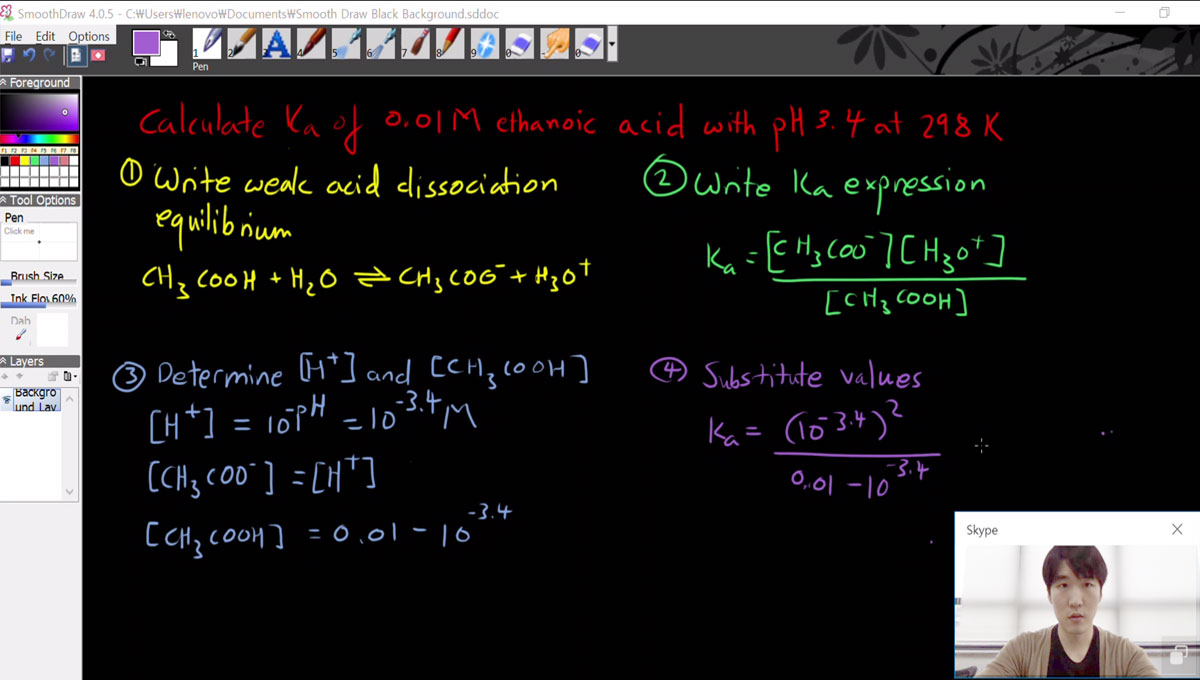 SmoothDraw 4.0.5 - C:₩Users₩lenovo₩Documents₩Smooth Draw Black Background.sddoc
File Edit Options
1 2 3 4 5 6 7 8 9 0 0
Pen
Foreground
F1 F2 F3 F4 F5 F6 F7 F8
Tool Options
Pen
Click me
Brush Size
Ink Flow 60%
Dab
Layers
Backgro
und Lay
Calculate Ka of 0.01M ethanoic acid with pH 3.4 at 298 K
① Write weak acid dissociation
equilibrium
CH₃COOH + H₂O ⇌ CH₃COO⁻ + H₃O⁺
② Write Ka expression
Ka = [CH₃COO⁻][H₃O⁺]
[CH₃COOH]
③ Determine [H⁺] and [CH₃COOH]
[H⁺] = 10⁻ᵖᴴ = 10⁻³·⁴ M
[CH₃COO⁻] = [H⁺]
[CH₃COOH] = 0.01 − 10⁻³·⁴
④ Substitute values
Ka = (10⁻³·⁴)²
0.01 − 10⁻³·⁴
Skype